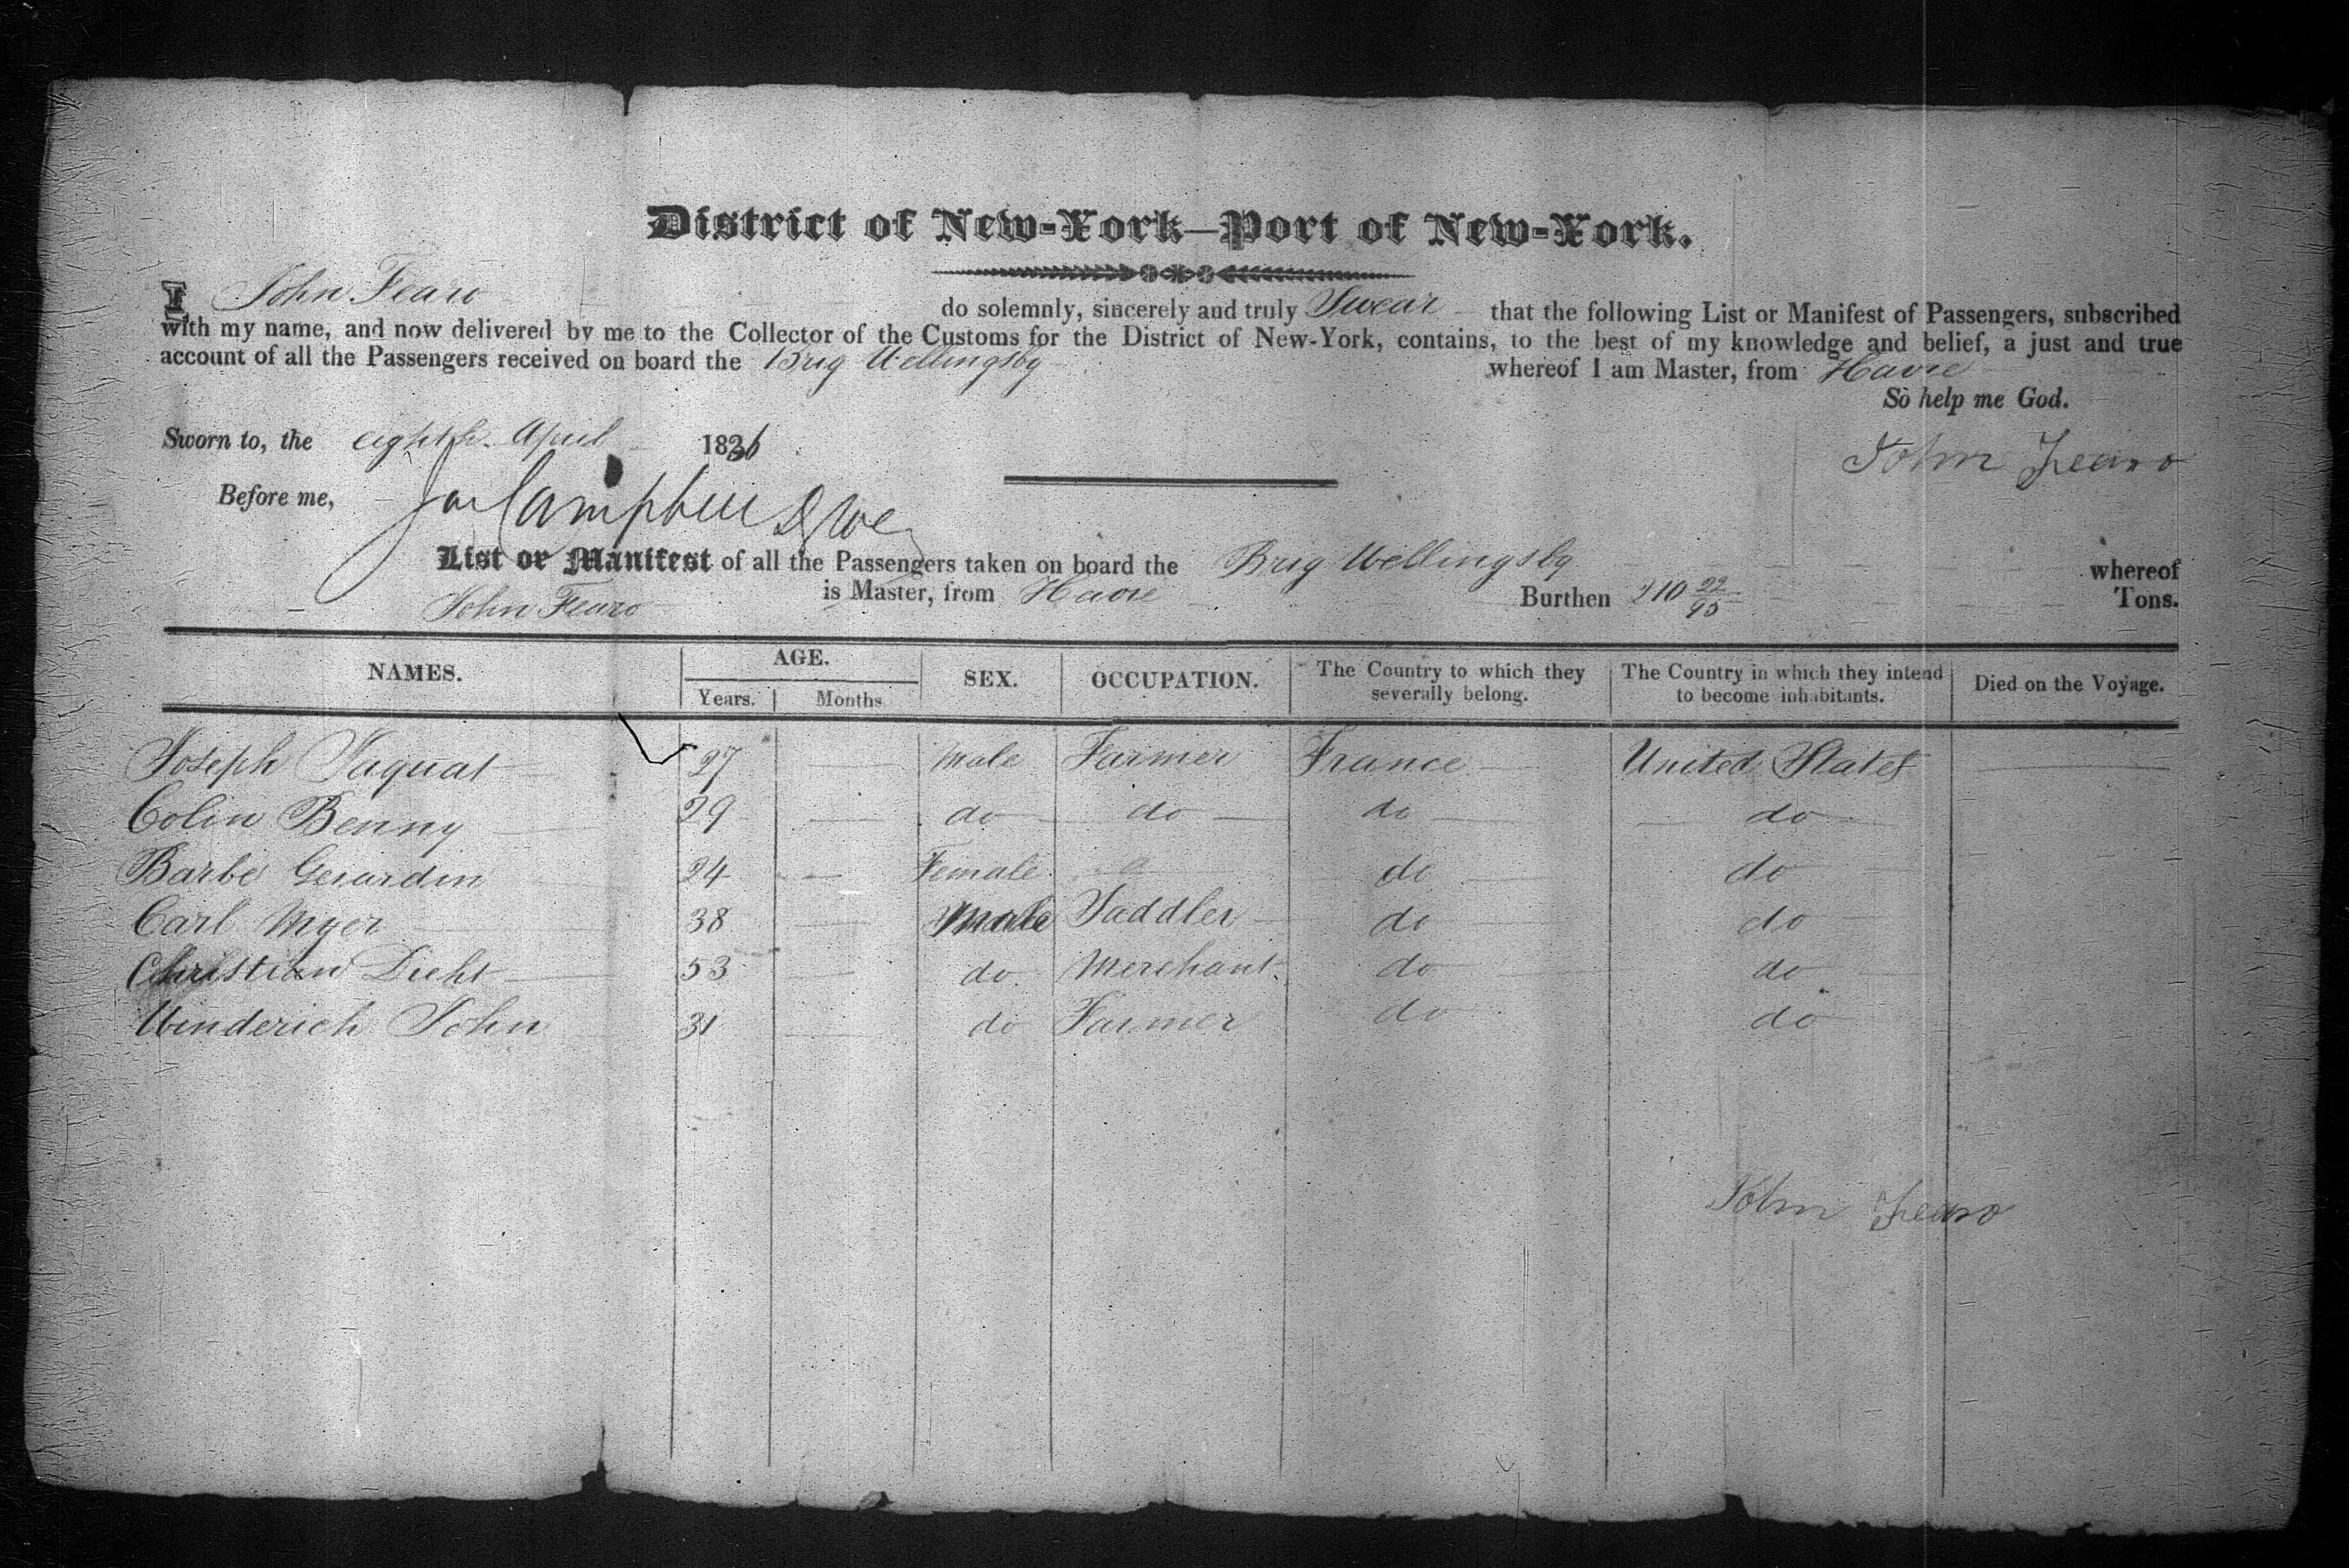 District of New-York—Port of New-York.
I John Fearo do solemnly, sincerely and truly Swear that the following List or Manifest of Passengers, subscribed
with my name, and now delivered by me to the Collector of the Customs for the District of New-York, contains, to the best of my knowledge and belief, a just and true
account of all the Passengers received on board the Brig Wellingsby whereof I am Master, from Havre
So help me God.
Sworn to, the eighth April 1836 John Fearo
Before me, Campbell
List or Manifest of all the Passengers taken on board the Brig Wellingsby whereof
John Fearo is Master, from Havre Burthen 210 22/95 Tons.
NAMES. AGE. SEX. OCCUPATION. The Country to which they severally belong. The Country in which they intend to become inhabitants. Died on the Voyage.
Years. Months
Joseph Jaquat 27 Male Farmer France United States
Colin Benny 29 do do do do
Barbe Gerardin 24 Female do do
Carl Myer 38 Male Saddler do do
Christian Dieht 53 do Merchant do do
Winderich John 31 do Farmer do do
John Fearo